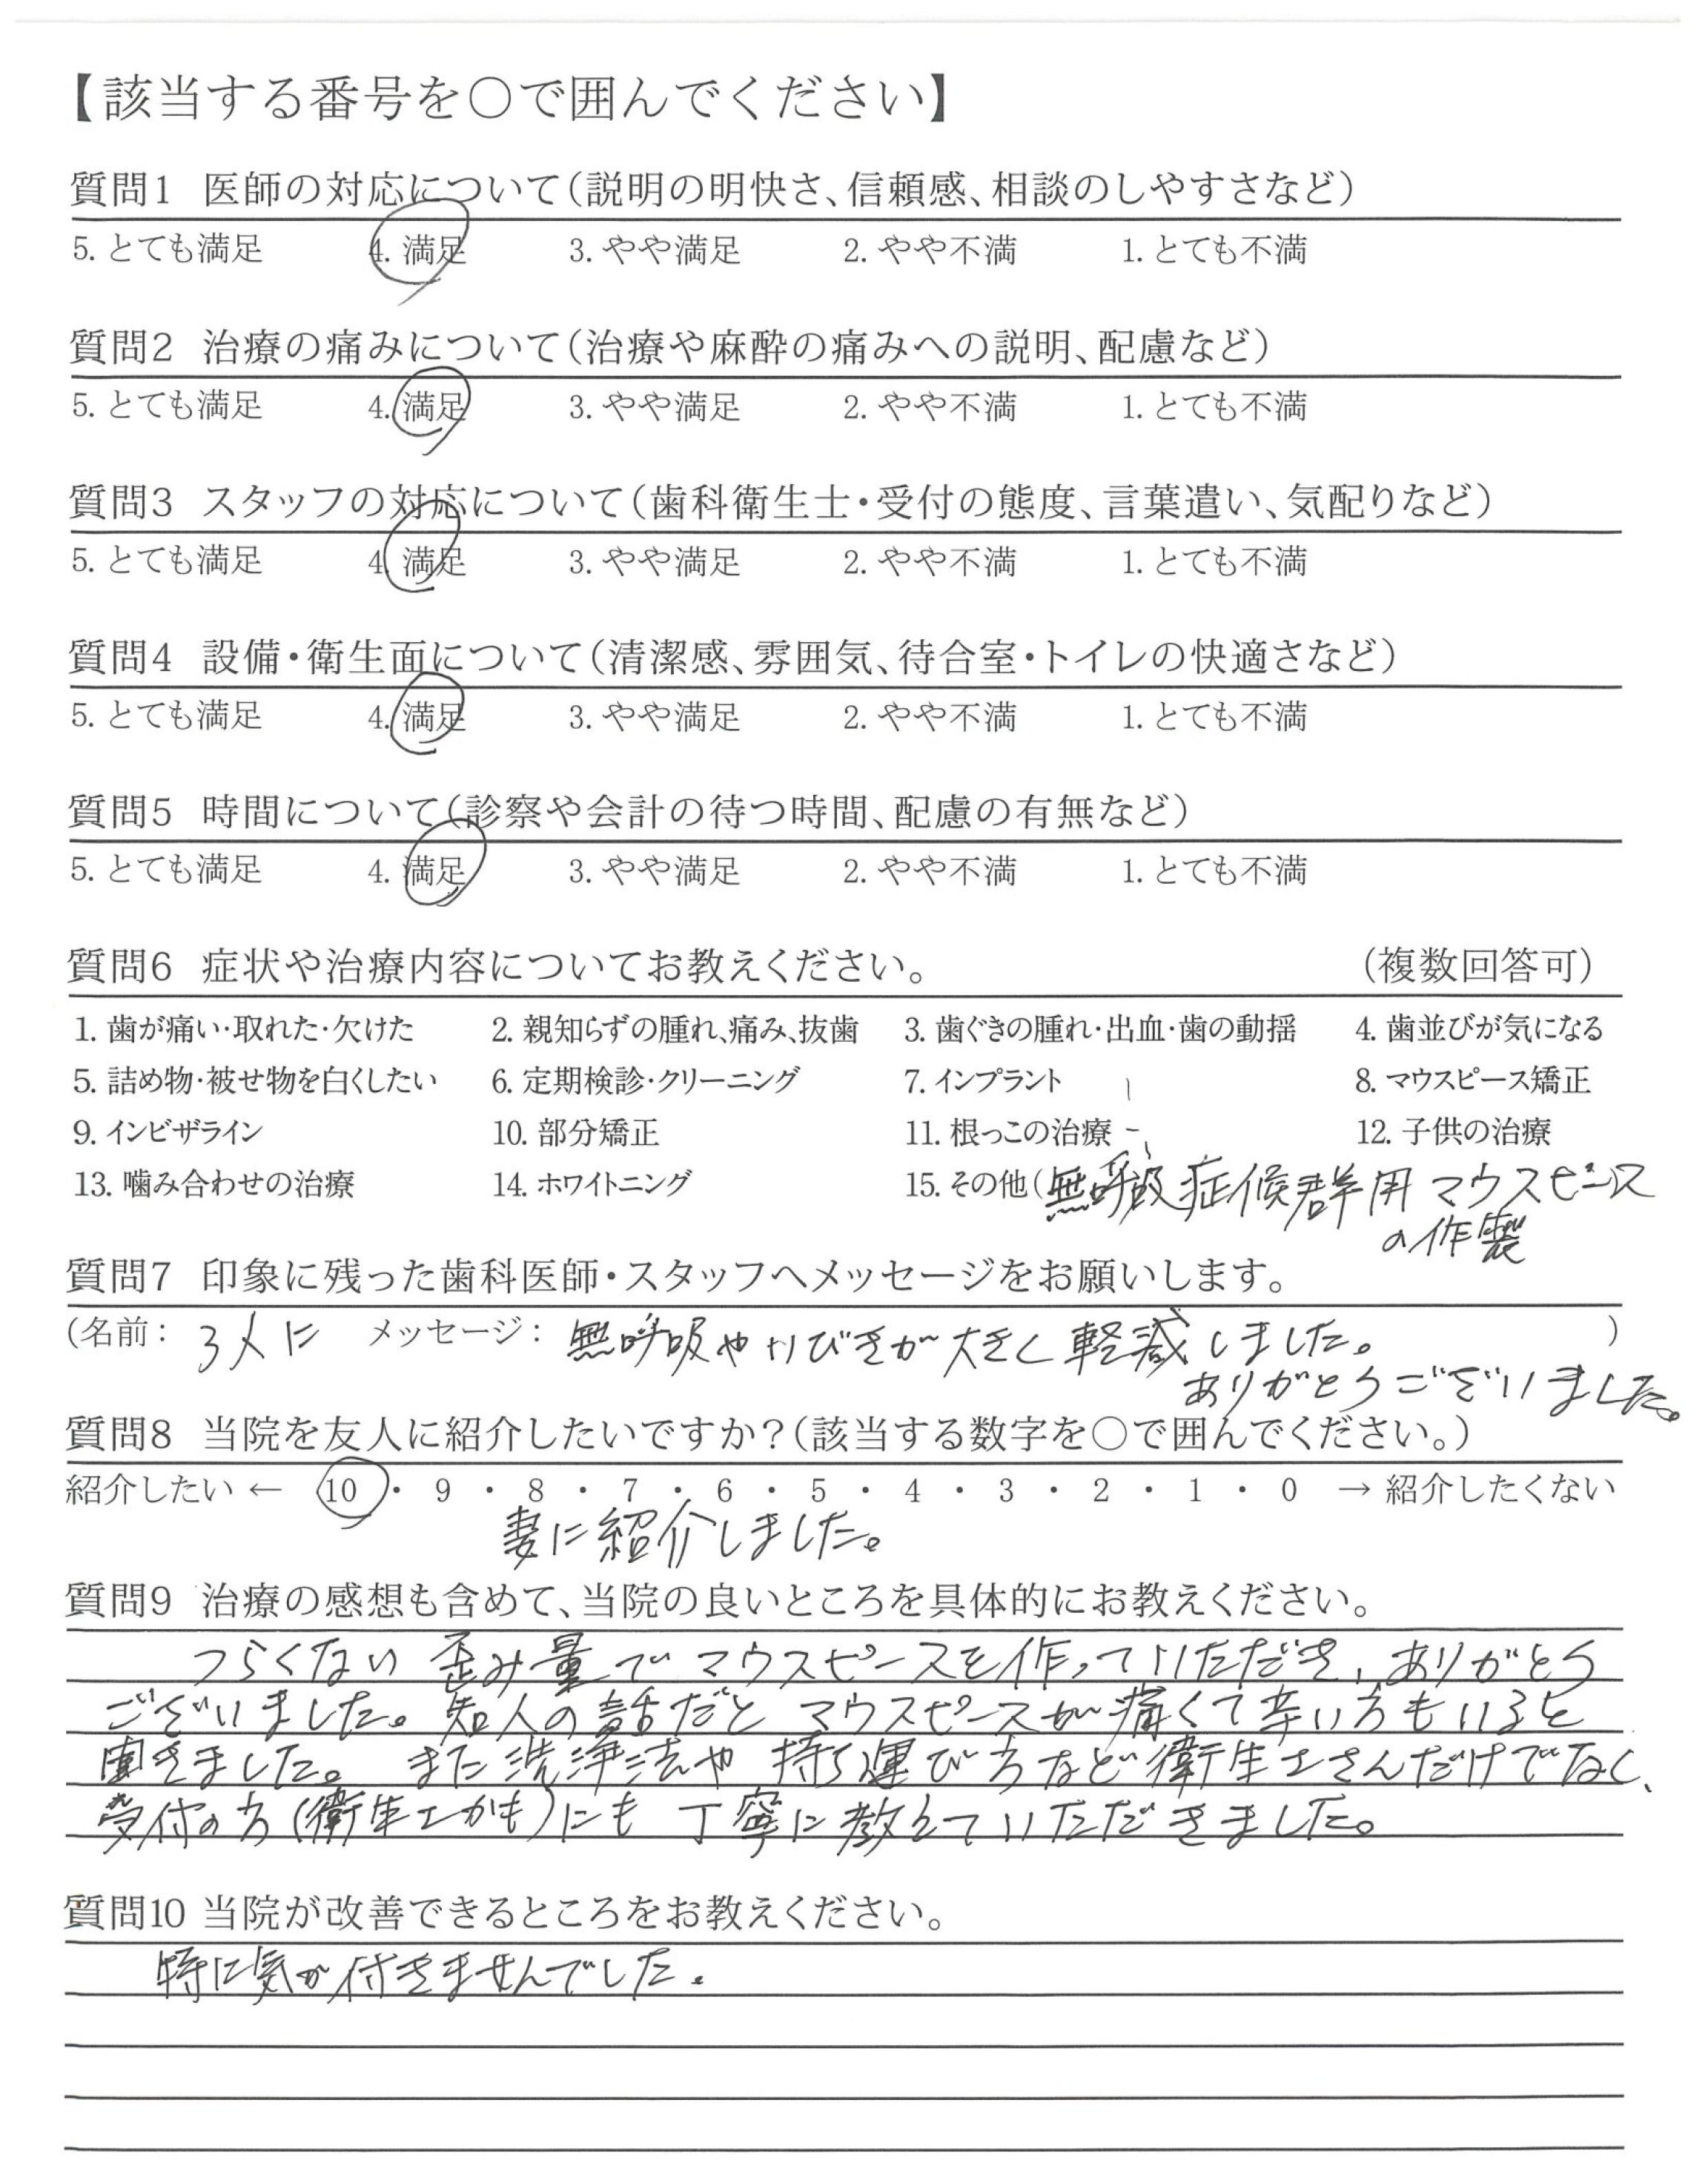 【該当する番号を○で囲んでください】
質問1 医師の対応について(説明の明快さ、信頼感、相談のしやすさなど)
5. とても満足 4. 満足 3. やや満足 2. やや不満 1. とても不満
質問2 治療の痛みについて(治療や麻酔の痛みへの説明、配慮など)
5. とても満足 4. 満足 3. やや満足 2. やや不満 1. とても不満
質問3 スタッフの対応について(歯科衛生士・受付の態度、言葉遣い、気配りなど)
5. とても満足 4. 満足 3. やや満足 2. やや不満 1. とても不満
質問4 設備・衛生面について(清潔感、雰囲気、待合室・トイレの快適さなど)
5. とても満足 4. 満足 3. やや満足 2. やや不満 1. とても不満
質問5 時間について(診察や会計の待つ時間、配慮の有無など)
5. とても満足 4. 満足 3. やや満足 2. やや不満 1. とても不満
質問6 症状や治療内容についてお教えください。 (複数回答可)
1. 歯が痛い・取れた・欠けた 2. 親知らずの腫れ、痛み、抜歯 3. 歯ぐきの腫れ・出血・歯の動揺 4. 歯並びが気になる
5. 詰め物・被せ物を白くしたい 6. 定期検診・クリーニング 7. インプラント 8. マウスピース矯正
9. インビザライン 10. 部分矯正 11. 根っこの治療 12. 子供の治療
13. 噛み合わせの治療 14. ホワイトニング 15. その他(無呼吸症候群用マウスピース
の作製
質問7 印象に残った歯科医師・スタッフへメッセージをお願いします。
(名前: 3人に メッセージ: 無呼吸やいびきが大きく軽減しました。 )
ありがとうございました。
質問8 当院を友人に紹介したいですか?(該当する数字を○で囲んでください。)
紹介したい ← 10 ・ 9 ・ 8 ・ 7 ・ 6 ・ 5 ・ 4 ・ 3 ・ 2 ・ 1 ・ 0 → 紹介したくない
妻に紹介しました。
質問9 治療の感想も含めて、当院の良いところを具体的にお教えください。
つらくない歪み量でマウスピースを作っていただき、ありがとう
ございました。知人の話だとマウスピースが痛くて辛い方もいると
聞きました。また洗浄法や持ち運び方など衛生士さんだけでなく、
受付の方(衛生士かも)にも丁寧に教えていただきました。
質問10 当院が改善できるところをお教えください。
特に気が付きませんでした。